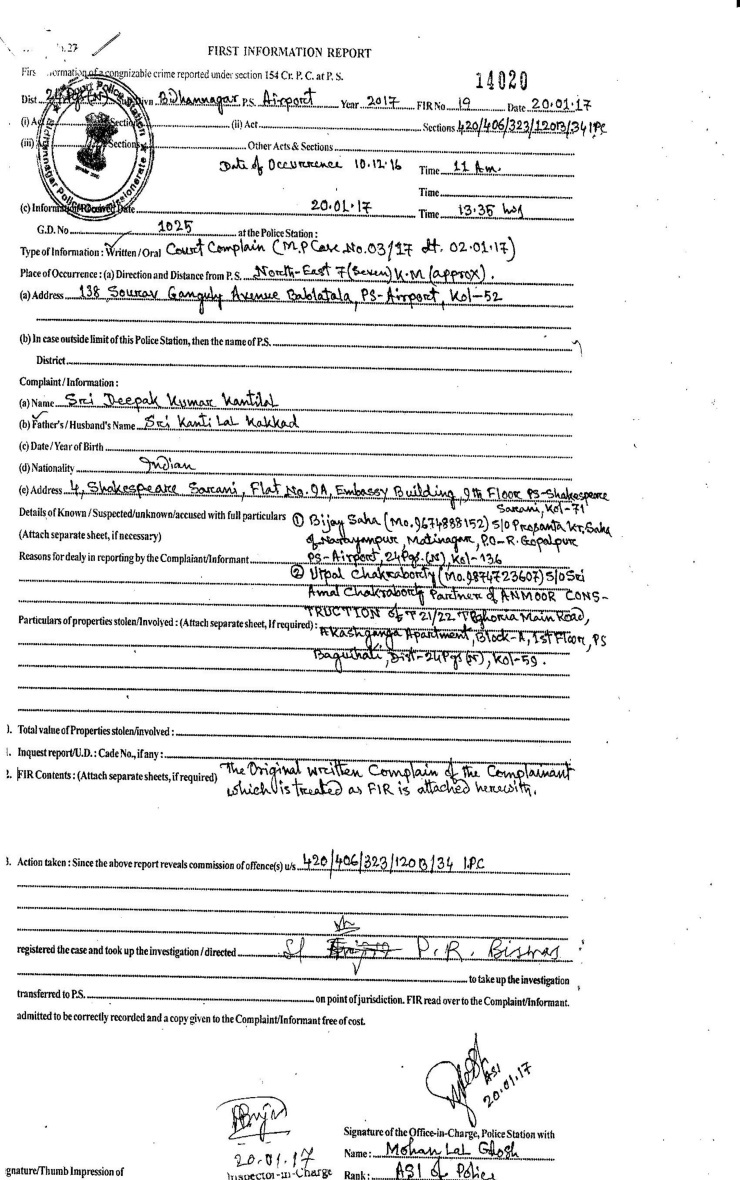 . 27
FIRST INFORMATION REPORT
Firs ormation of a congnizable crime reported under section 154 Cr. P. C. at P. S.
14020
Dist 24 Pgs (N) Sub Divn Bidhannagar P.S. Airport Year 2017 FIR No 19 Date 20.01.17
(i) Act Sections (ii) Act Sections 420/406/323/120B/34 IPC
(iii) Sections Other Acts & Sections
Date of Occurrence 10.12.16 Time 11 Am.
Time
(c) Information Received Date 20.01.17 Time 13.35 hrs
G.D. No 1025 at the Police Station :
Type of Information : Written / Oral Court Complain (M.P Case No. 03/17 dt. 02.01.17)
Place of Occurrence : (a) Direction and Distance from P.S. North-East 7 (Seven) K.M (approx).
(a) Address 138 Sourav Ganguly Avenue Bablatala, PS-Airport, Kol-52
(b) In case outside limit of this Police Station, then the name of P.S.
District
Complaint / Information :
(a) Name Sri Deepak Kumar Kantilal
(b) Father's / Husband's Name Sri Kanti Lal Kakkad
(c) Date / Year of Birth
(d) Nationality Indian
(e) Address 4, Shakespeare Sarani, Flat No. 9A, Embassy Building, 9th Floor PS-Shakespeare
Sarani, Kol-71
Details of Known / Suspected/unknown/accused with full particulars ① Bijay Saha (Mo. 9674888152) S/o Prasanta Kr. Saha
(Attach separate sheet, if necessary) of Narayanpur Matinagar, P.O-R. Gopalpur
Reasons for dealy in reporting by the Complaiant/Informant PS-Airport, 24 Pgs. (N), Kol-136
② Utpal Chakraborty (Mo. 9874723607) S/o Sri
Amal Chakraborty Partner of ANMOOR CONS-
TRUCTION of T 21/22. Teghoria Main Road,
Particulars of properties stolen/Involved : (Attach separate sheet, If required) : Akashganga Apartment, Block-A, 1st Floor, PS
Baguihati, Dist-24 Pgs (N), Kol-59.
). Total value of Properties stolen/involved :
. Inquest report/U.D. : Cade No., if any :
!. FIR Contents : (Attach separate sheets, if required) The Original written Complain of the Complainant
which is treated as FIR is attached herewith.
3. Action taken : Since the above report reveals commission of offence(s) u/s 420/406/323/120B/34 I.P.C
registered the case and took up the investigation / directed SI P. R. Biswas
to take up the investigation
transferred to P.S. on point of jurisdiction. FIR read over to the Complaint/Informant.
admitted to be correctly recorded and a copy given to the Complaint/Informant free of cost.
ASI
20.01.17
Signature of the Office-in-Charge, Police Station with
20.01.17 Name : Mohan Lal Ghosh
gnature/Thumb Impression of Inspector-in-Charge Rank : ASI of Police